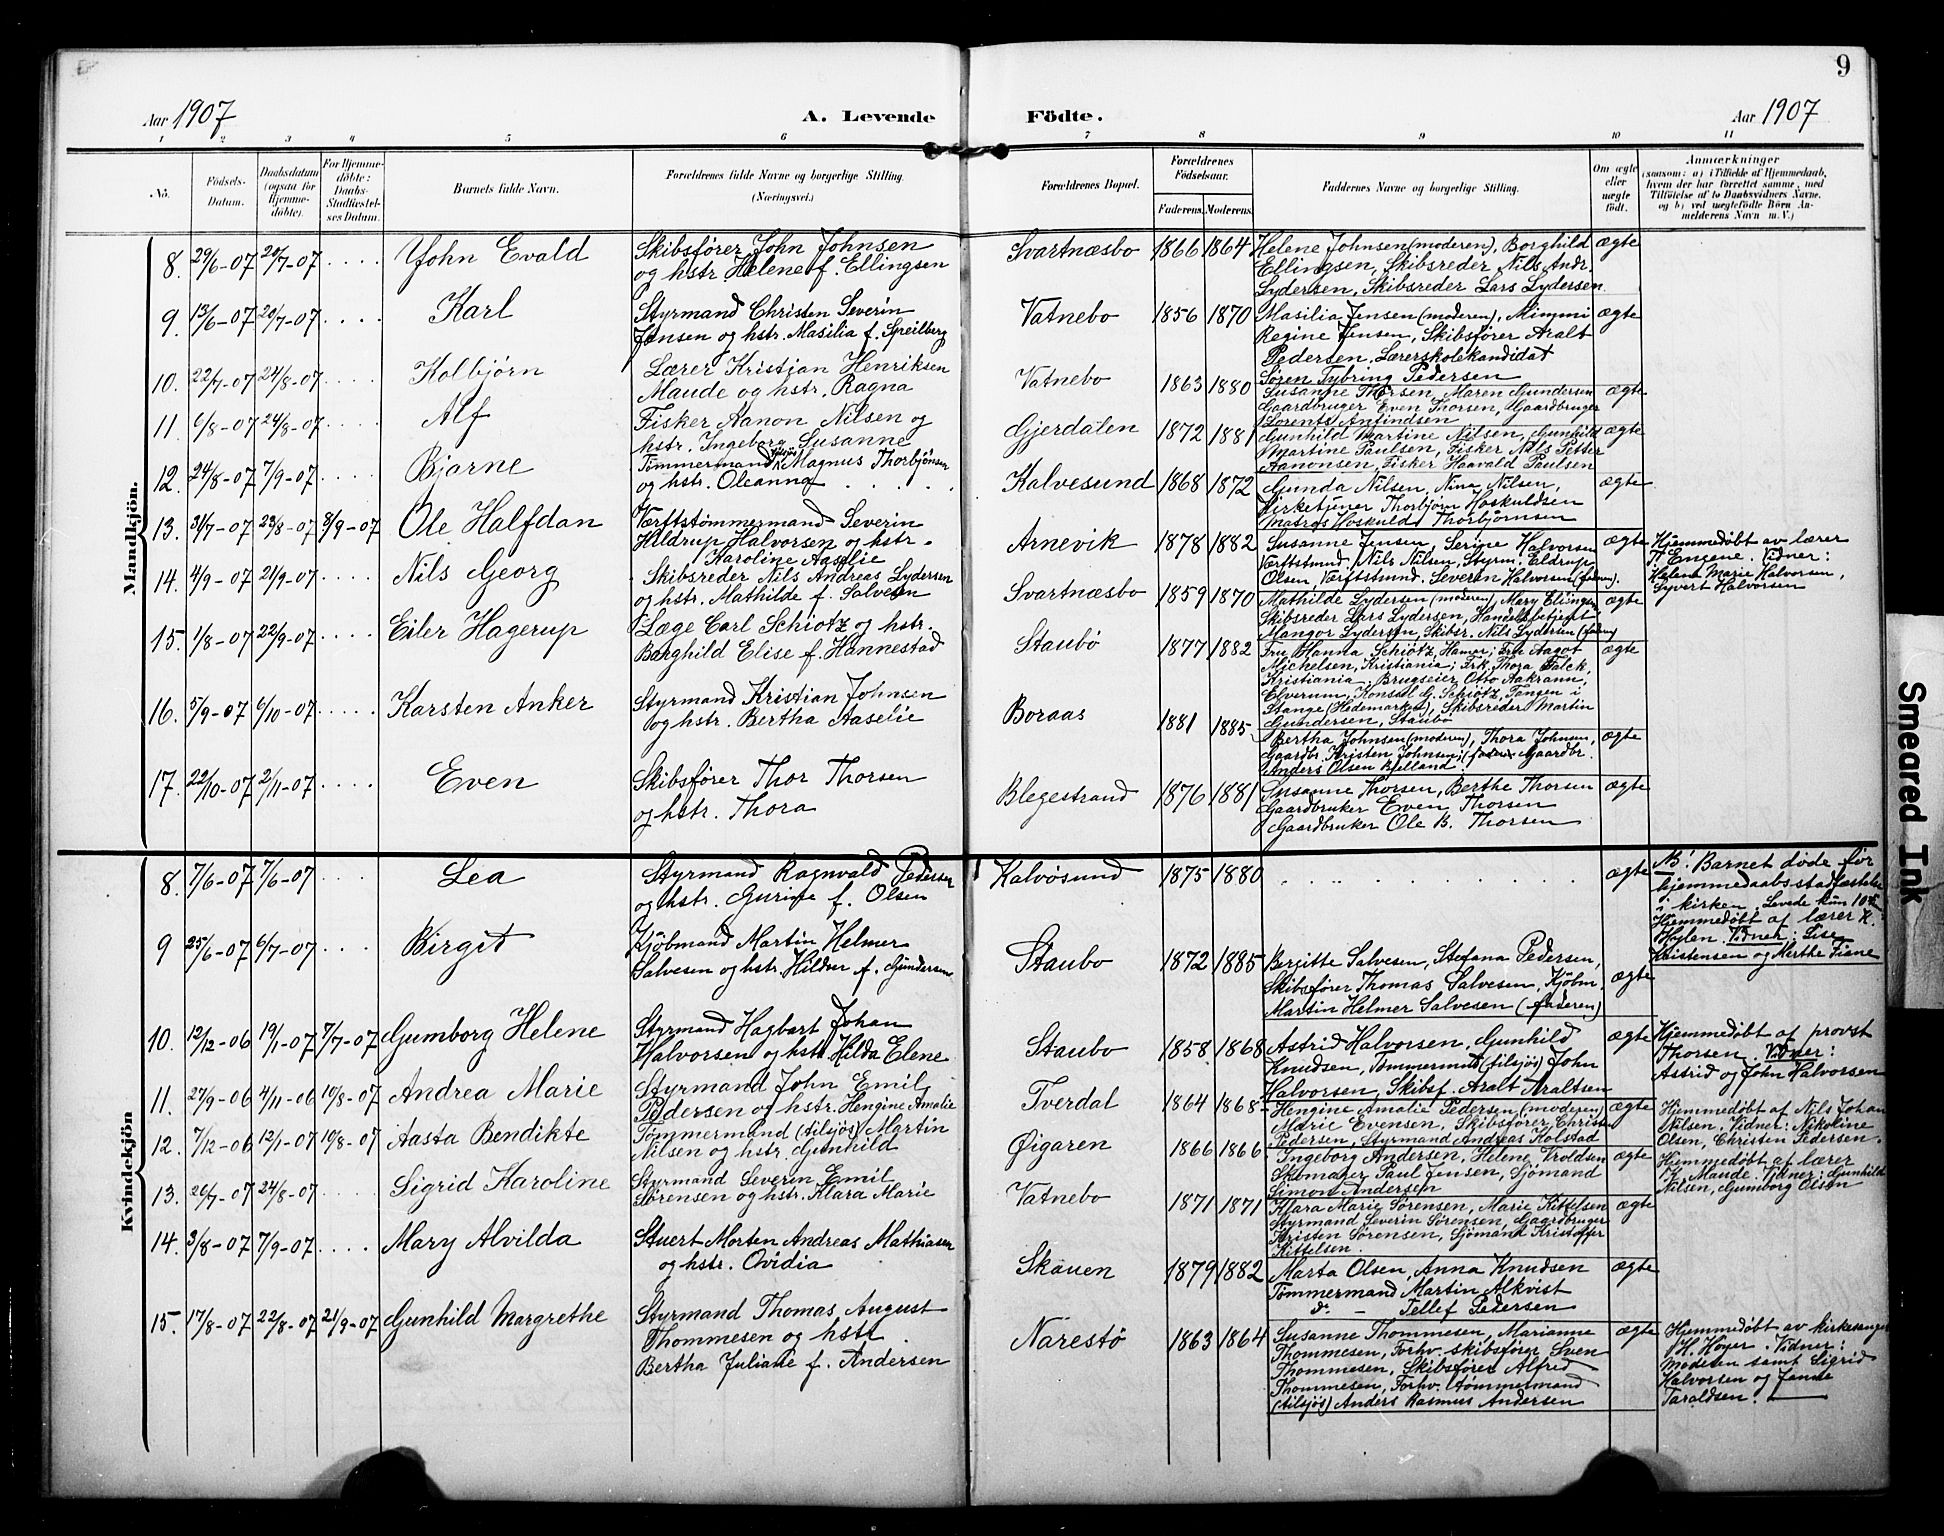 9
Aar 1907
A. Levende
Födte.
Aar 1907
1 2 3 4 5 6 7 8 9 10 11
No.
Födsels-
Datum.
Daabsdatum
(ogsaa for
Hjemme-
döbte).
For Hjemme-
döbte:
Daabs-
Stadfæstel-
ses Datum.
Barnets fulde Navn.
Forældrenes fulde Navne og borgerlige Stilling.
(Næringsvei.)
Forældrenes Bopæl.
Forældrenes
Födselsaar.
Faderens. Moderens.
Faddernes Navne og borgerlige Stilling.
Om ægte
eller
uægte
födt.
Anmærkninger
(saasom: a) i Tilfælde af Hjemmedaab,
hvem der har forrettet samme, med
Tilföielse af to Daabsvidners Navne.
og b) ved uægtefödte Börn An-
melderens Navn m. V.)
Mandkjön.
8. 29/6-07 20/7-07 . . . . John Evald
Skibsfører John Johnsen
og hstr. Helene f. Ellingsen
Svartnæsbo 1866 1864
Helene Johnsen (moderen), Borghild
Ellingsen, Skibsreder Nils Andr.
Lydersen, Skibsreder Lars Lydersen
ægte
9. 13/6-07 20/7-07 . . . . Karl
Styrmand Christen Severin
Jensen og hstr. Masilia f. Speilberg
Vatnebo 1856 1870
Masilia Jensen (moderen), Mimmi
Regine Jensen, Skibsfører Aralt
Pedersen, Lærerskolekandidat
Søren Tybring Pedersen
ægte
10. 22/7-07 24/8-07 . . . . Kolbjörn
Lærer Kristian Henriksen
Maude og hstr. Ragna
Vatnebo 1863 1880
Susanne Thorsen, Maren Gundersen
Gaardbruger Even Thorsen, Gaardbruger
Lorents Anfindsen
ægte
11. 6/8-07 24/8-07 . . . . Alf
Fisker Aanon Nilsen og
hstr. Ingeborg Susanne
Gjerdalen 1872 1881
Gunhild Martine Nilsen, Gunhild
Martine Paulsen, Fisker Nils Petter
Aanonsen, Fisker Haavald Paulsen
ægte
12. 24/8-07 7/9-07 . . . . Bjarne
Tömmermand tilsjøs Magnus Thorbjönsen
og hstr. Oleanna
Kalvesund 1868 1872
Gunda Nilsen, Nina Nilsen,
Kirketjener Thorbjörn Hoskuldsen
Matros Hoskuld Thorbjørnsen
ægte
13. 31/7-07 23/8-07 8/9-07 Ole Halfdan
Værftstømmermand Severin
Hildrup Halvorsen og hstr.
Karoline Aaselie
Arnevik 1878 1882
Susanne Jensen, Serine Halvorsen
Værftstmd. Nils Nilsen, Styrm. Eldrup
Olsen Værftstmd. Severin Halvorsen (faderen).
ægte
Hjemmedøbt av lærer
T. Engene. Vidner:
Helene Marie Halvorsen,
Syvert Halvorsen
14. 4/9-07 21/9-07 . . . . Nils Georg
Skibsreder Nils Andreas Lydersen
og hstr. Mathilde f. Salvesen
Svartnæsbo 1859 1870
Mathilde Lydersen (moderen) Mary Ellingsen
Skibsreder Lars Lydersen, Handelsbetjent
Mangor Lydersen, Skibsr. Nils Lydersen (faderen)
ægte
15. 1/8-07 22/9-07 . . . . Eiler Hagerup
Læge Carl Schiötz og hstr.
Borghild Elise f. Hannestad
Staubö 1877 1882
Fru Hanna Schiötz, Hamar; Fru Aagot
Michelsen, Kristiania; Frk. Thora Falck,
Kristiania. Brugseier Otto Aakrann,
Elverum, Konsul G. Schiötz, Tangen i
Stange (Hedemarken), Skibsreder Martin
Gundersen, Staubö
ægte
16. 5/9-07 6/10-07 . . . . . Karsten Anker
Styrmand Kristian Johnsen
og hstr. Bertha Aaselie
Boraas 1881 1885
Bertha Johnsen (moderen), Thora Johnsen,
Gaardbr. Kristen Johnsen, (faderen Gaardbr.
Anders Olsen Bjelland.
ægte
17. 22/10-07 2/11-07 . . . . Even
Skibsfører Thor Thorsen
og hstr. Thora
Blegestrand 1876 1881
Susanne Thorsen, Berthe Thorsen
Gaardbruker Even Thorsen
Gaardbruker Ole B. Thorsen
ægte
Kvindekjön
8. 7/6-07 7/6-07 . . . Lea
Styrmand Ragnvald Pedersen
og hstr. Gurine f. Olsen
Kalvösund 1875 1880 . . . . . . . . . ægte
NB! Barnet døde før
hjemmedaabsstadfæstelse
i kirken. Levede kun 10
Hjemmedøbt af lærer K.
Høylen. Vidner: Lise
Kristensen og Merthe Fiane
9 25/6-07 6/7-07 . . . Birgit
Kjöbmand Martin Helmer
Salvesen og hstr. Hildur f. Gundersen
Staubo 1872 1885
Bergitte Salvesen, Stefana Pedersen,
Skibsfører Thomas Salvesen, Kjöbm.
Martin Helmer Salvesen (faderen)
ægte
10. 12/12-06 19/1-07 7/7-07 Gumborg Helene
Styrmand Hagbart Johan
Halvorsen og hstr. Hilda Elene
Staubo 1858 1868
Astrid Halvorsen, Gunhild
Knudsen, Tömmermand (tilsjøs) John
Halvorsen, Skibsf. Aralt Araltsen
ægte
Hjemmedøbt af provst
Thorsen. Vidner:
Astrid og John Halvorsen
11. 27/9-06 4/11-06 10/8-07 Andrea Marie
Styrmand John Emil
Pedersen og hstr. Hengine Amalie
Tverdal 1864 1868
Hengine Amalie Pedersen (moderen)
Marie Evensen, Skibsfører Christen
Pedersen, Styrmand Andreas Kolstad
ægte
Hjemmedøbt af Nils Johan
Nilsen, Vidner: Nikoline
Olsen, Christen Pedersen.
12. 7/12-06 12/1-07 10/8-07 Aasta Bendikte
Tømmermand (tilsjøs) Martin
Nilsen og hstr. Gunhild
Øigaren 1866 1866
Ingeborg Andersen, Helene Vroldsen
Skomager Paul Jensen, Sjömand
Simon Andersen
ægte
Hjemmedøbt af lærer
K. Maude. Vidner: Gunhild
Nilsen, Gumborg Olsen
13. 26/7-07 24/8-07 . . . Sigrid Karoline
Styrmand Severin Emil
Sørensen og hstr. Klara Marie
Vatnebo 1871 1871
Klara Marie Sørensen, Marie Kittelsen
Styrmand Severin Sørensen, Gaardbruger
Kristen Sørensen, Sjömand Kristoffer
Kittelsen.
ægte
14. 3/8-07 7/9-07 . . . . Mary Alvilda
Stuert Morten Andreas Mathiasen
og hstr. Ovidia
Skauen 1879 1882
Marta Olsen, Anna Knudsen
Tömmermand Martin Alkvist
do. - Tellef Pedersen
ægte
15. 17/8-07 22/8-07 21/9-07 Gunhild Margrethe
Styrmand Thomas August
Thommesen og hstr.
Bertha Juliane f. Andersen
Narestö 1863 1864
Susanne Thommesen, Marianne
Thommesen, Forhv. skibsfører Sven
Thommesen, Skibsfører Alfred
Thommesen, Forhv. tømmermand
(tilsjøs) Anders Rasmus Andersen
ægte
Hjemmedøbt av kirkesanger
H. Høyer. Vidner:
Moderen samt Sigrid
Halvorsen og
Taraldsen.
Smeared Ink